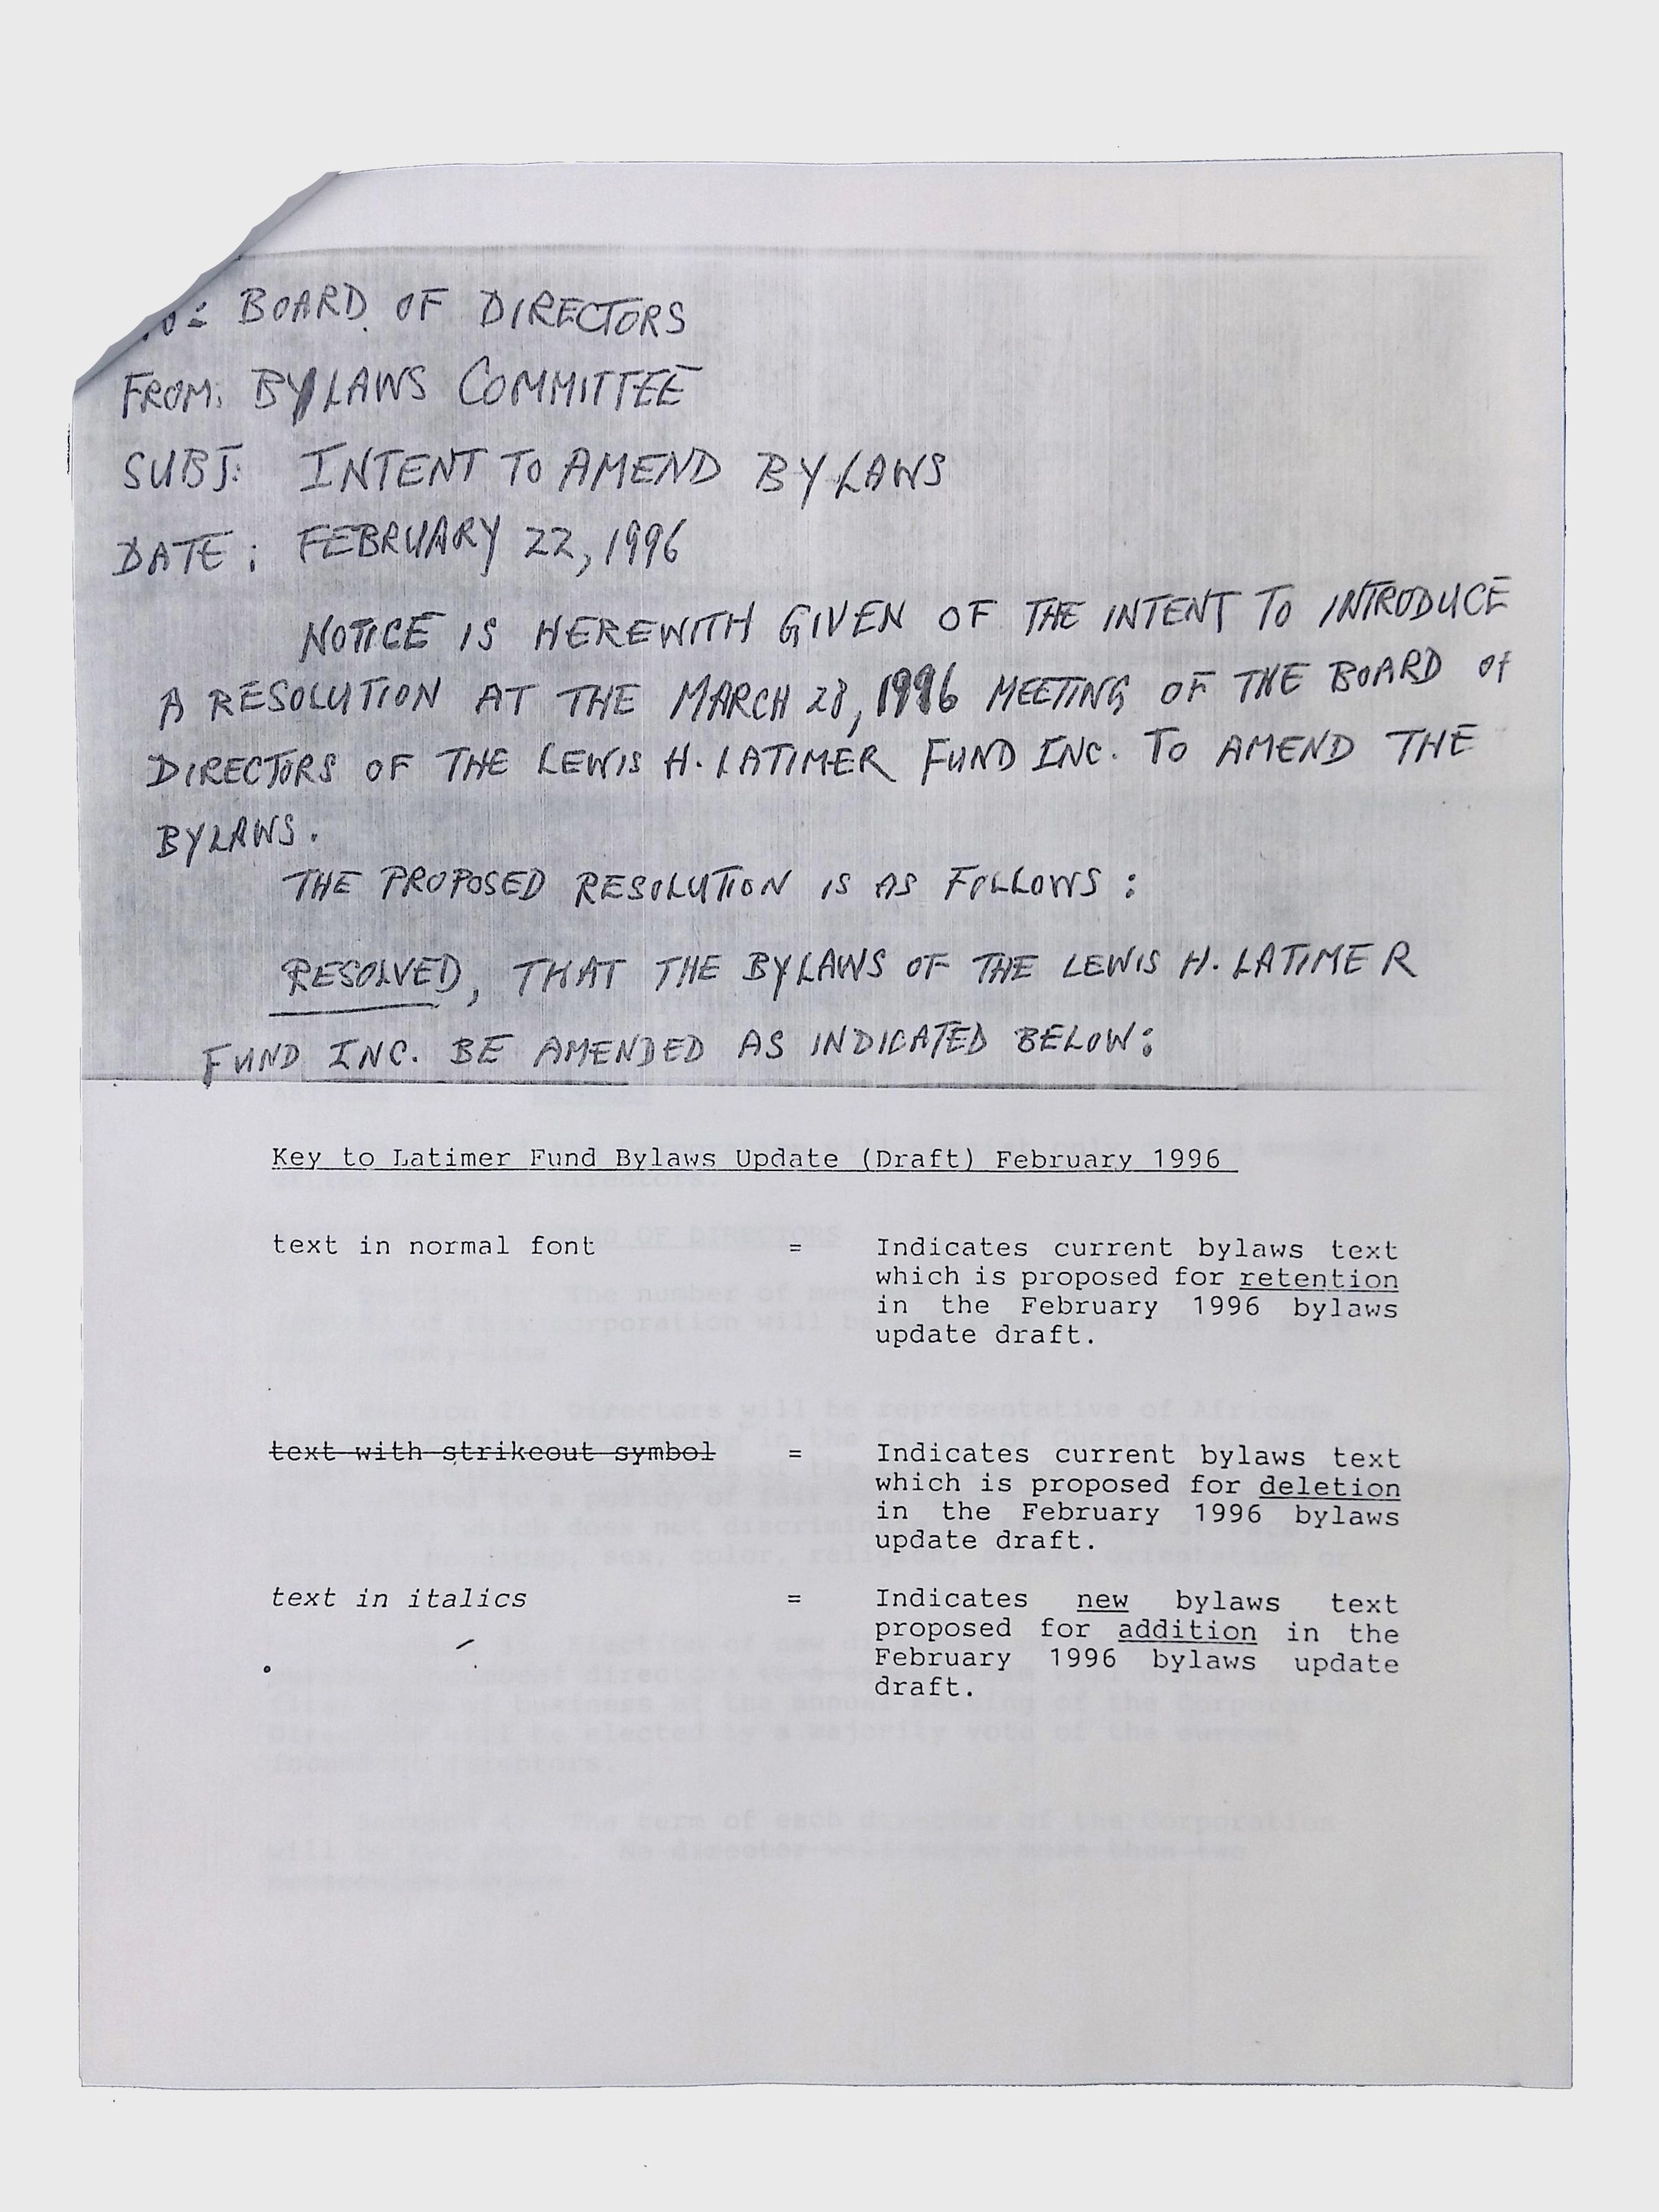 TO: BOARD OF DIRECTORS
FROM: BYLAWS COMMITTEE
SUBJ: INTENT TO AMEND BYLAWS
DATE: FEBRUARY 22, 1996
NOTICE IS HEREWITH GIVEN OF THE INTENT TO INTRODUCE
A RESOLUTION AT THE MARCH 28, 1996 MEETING OF THE BOARD OF
DIRECTORS OF THE LEWIS H. LATIMER FUND INC. TO AMEND THE
BYLAWS.
THE PROPOSED RESOLUTION IS AS FOLLOWS:
RESOLVED, THAT THE BYLAWS OF THE LEWIS H. LATIMER
FUND INC. BE AMENDED AS INDICATED BELOW:
Key to Latimer Fund Bylaws Update (Draft) February 1996
text in normal font = Indicates current bylaws text
which is proposed for retention
in the February 1996 bylaws
update draft.
text with strikeout symbol = Indicates current bylaws text
which is proposed for deletion
in the February 1996 bylaws
update draft.
text in italics = Indicates new bylaws text
proposed for addition in the
February 1996 bylaws update
draft.